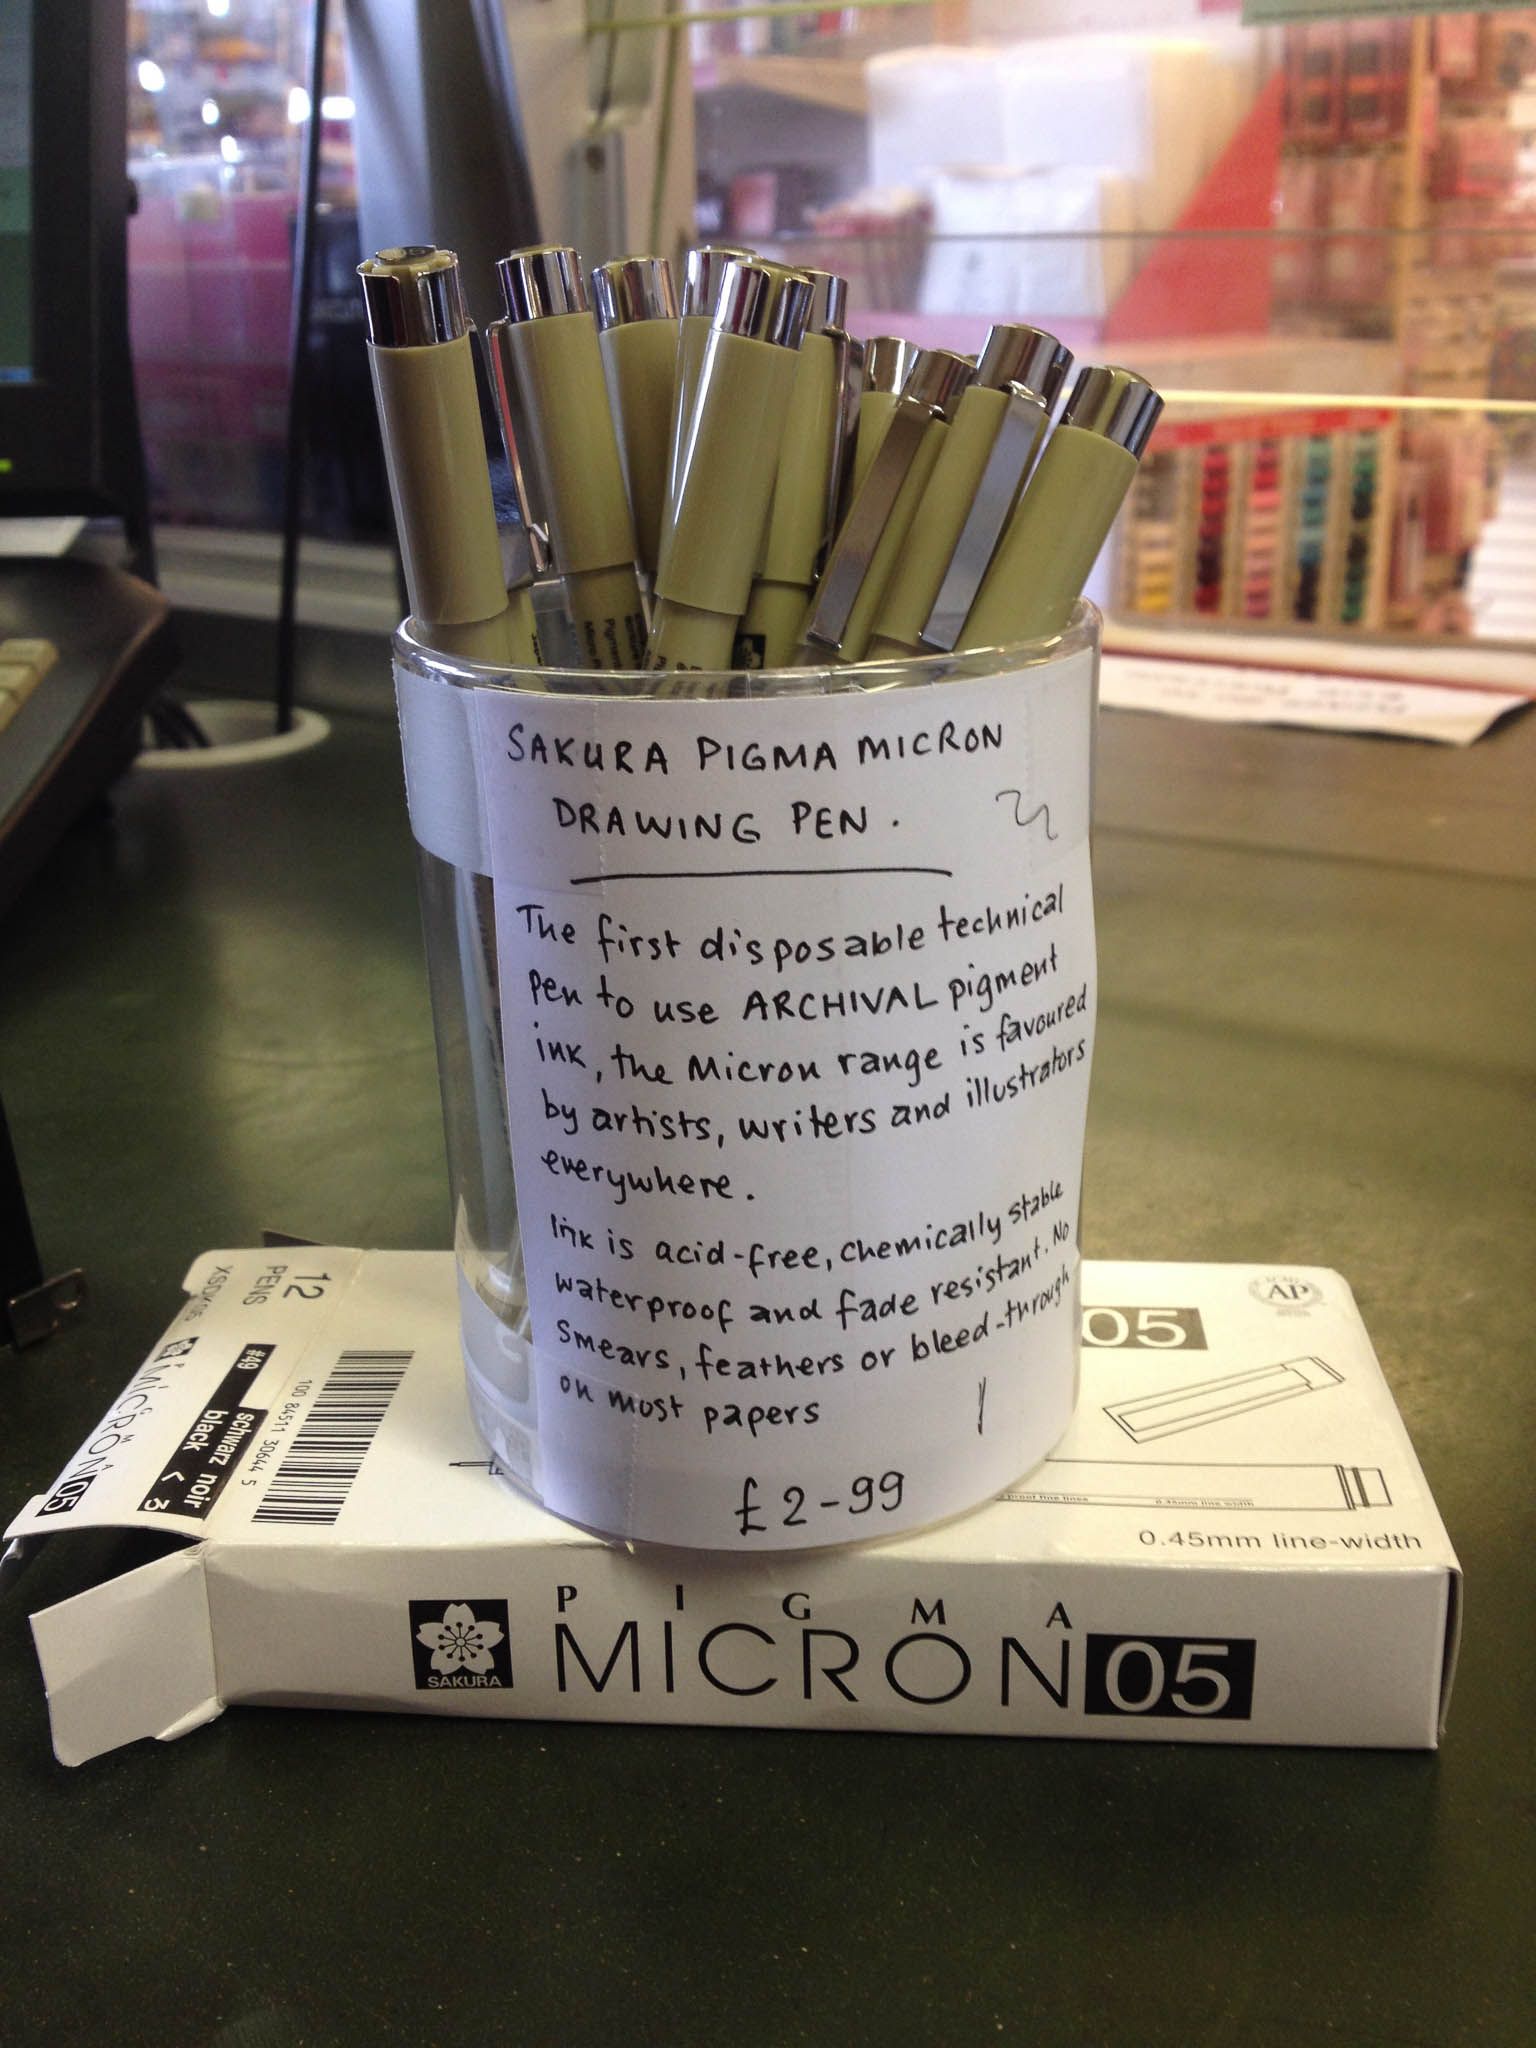 SAKURA PIGMA MICRON
DRAWING PEN.
The first disposable technical
pen to use ARCHIVAL pigment
ink, the Micron range is favoured
by artists, writers and illustrators
everywhere.
Ink is acid-free, chemically stable
waterproof and fade resistant. No
smears, feathers or bleed-through
on most papers
£2-99
12
PENS
XSDK05
PIGMA
MICRON 05
#49
schwarz noir
black
100 84511 30644 5
05
AP
0.45mm line width
0.45mm line-width
SAKURA
PIGMA
MICRON 05